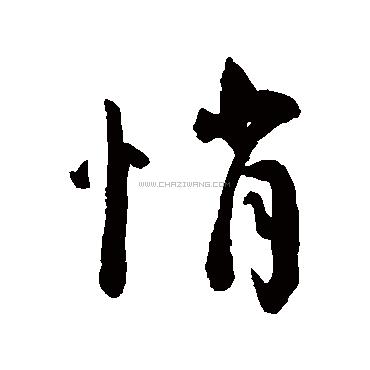 悄
WWW.CHAZIWANG.COM